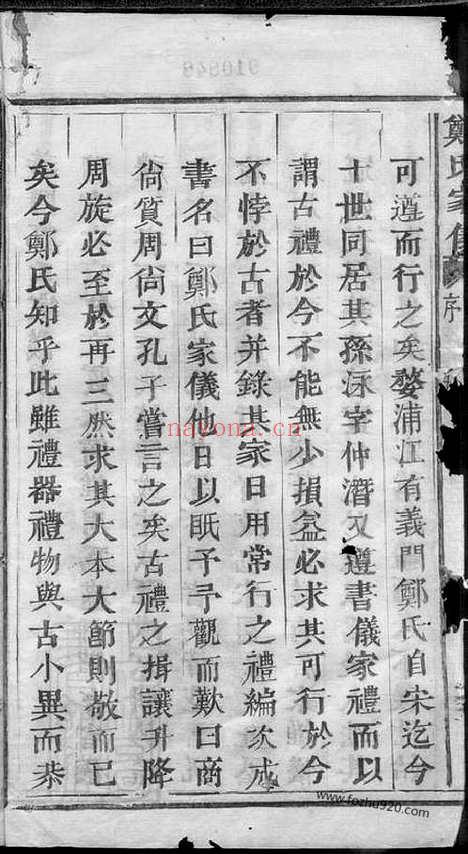 鄭氏家儀序
可遵而行之矣婺浦江有義門鄭氏自宋迄今
十世同居其孫泳字仲潛又遵書儀家禮而以
謂古禮於今不能無少損益必求其可行於今
不悖於古者并錄其家日用常行之禮編次成
書名曰鄭氏家儀他日以眂予予觀而歎曰商
尙質周尙文孔子嘗言之矣古禮之揖讓升降
周旋必至於再三然求其大本大節則敬而已
矣今鄭氏知乎此雖禮器禮物與古小異而恭
910849
nayona.cn
www.fozhu920.com